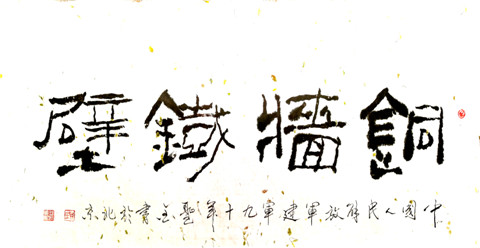 銅牆鐵壁
中國人民解放軍建軍九十年聖書於北京